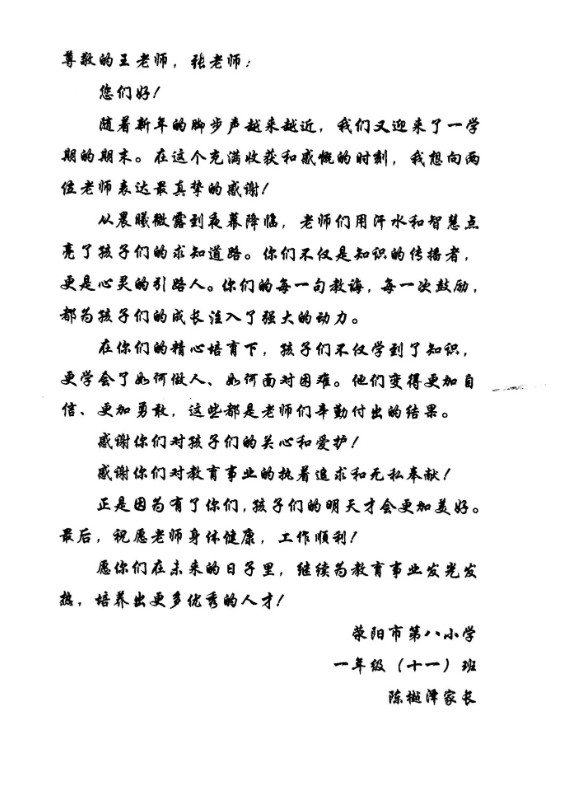 尊敬的王老师，张老师：
您们好！
随着新年的脚步声越来越近，我们又迎来了一学
期的期末。在这个充满收获和感慨的时刻，我想向两
位老师表达最真挚的感谢！
从晨曦微露到夜幕降临，老师们用汗水和智慧点
亮了孩子们的求知道路。你们不仅是知识的传播者，
更是心灵的引路人。你们的每一句教诲，每一次鼓励，
都为孩子们的成长注入了强大的动力。
在你们的精心培育下，孩子们不仅学到了知识，
更学会了如何做人、如何面对困难。他们变得更加自
信、更加勇敢，这些都是老师们辛勤付出的结果。
感谢你们对孩子们的关心和爱护！
感谢你们对教育事业的执着追求和无私奉献！
正是因为有了你们，孩子们的明天才会更加美好。
最后，祝愿老师身体健康，工作顺利！
愿你们在未来的日子里，继续为教育事业发光发
热，培养出更多优秀的人才！
荥阳市第八小学
一年级（十一）班
陈樾泽家长